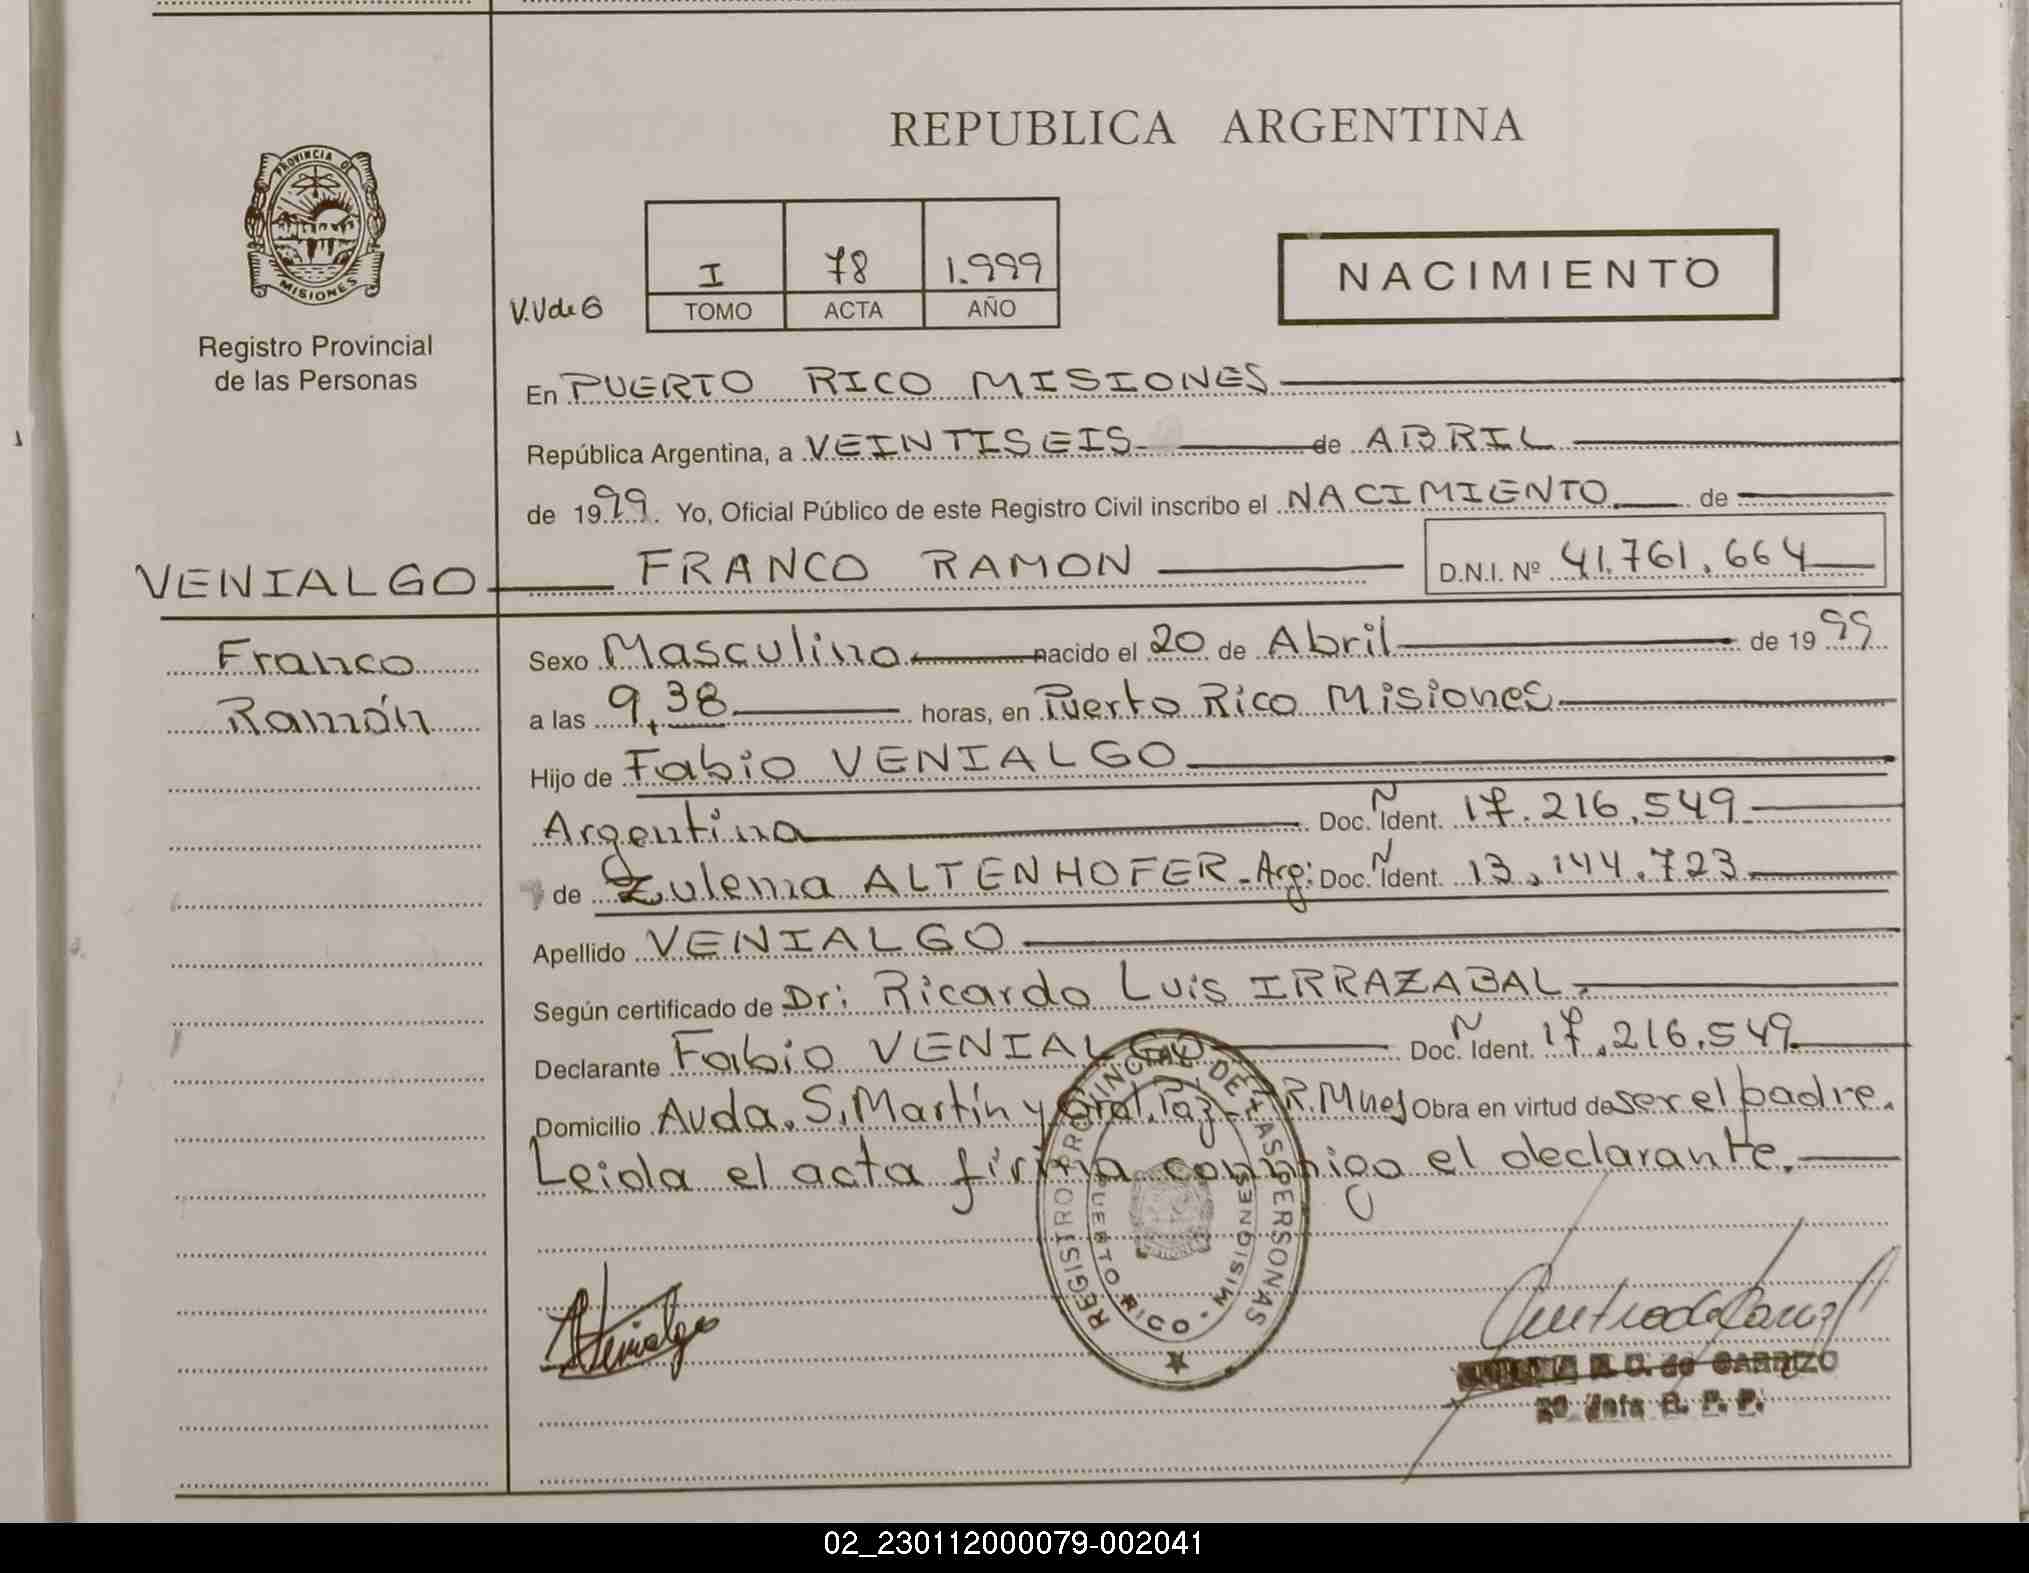 REPUBLICA ARGENTINA
PROVINCIA DE
MISIONES
Registro Provincial
de las Personas
V.V de G
I 78 1.999
TOMO ACTA AÑO
NACIMIENTO
En PUERTO RICO MISIONES
República Argentina, a VEINTISEIS de ABRIL
de 1999. Yo, Oficial Público de este Registro Civil inscribo el NACIMIENTO de
VENIALGO FRANCO RAMON D.N.I. Nº 41.761.664
Franco
Ramón
Sexo Masculino nacido el 20 de Abril de 1999
a las 9,38 horas, en Puerto Rico Misiones
Hijo de Fabio VENIALGO
Argentina Doc. Ñ Ident. 17.216.549
de Zulema ALTENHOFER - Arg: Doc. Ñ Ident. 13.144.723
Apellido VENIALGO
Según certificado de Dr: Ricardo Luis IRRAZABAL.
Declarante Fabio VENIALGO Doc. Ñ Ident. 17.216.549
Domicilio Avda. S. Martín y Gral. Paz - P. R. Mnes Obra en virtud de ser el padre.
Leida el acta firma conmigo el declarante.
REGISTRO PROVINCIAL DE LAS PERSONAS
PUERTO RICO - MISIONES
Venialgo
de CARRIZO
R. P. P.
02_230112000079-002041